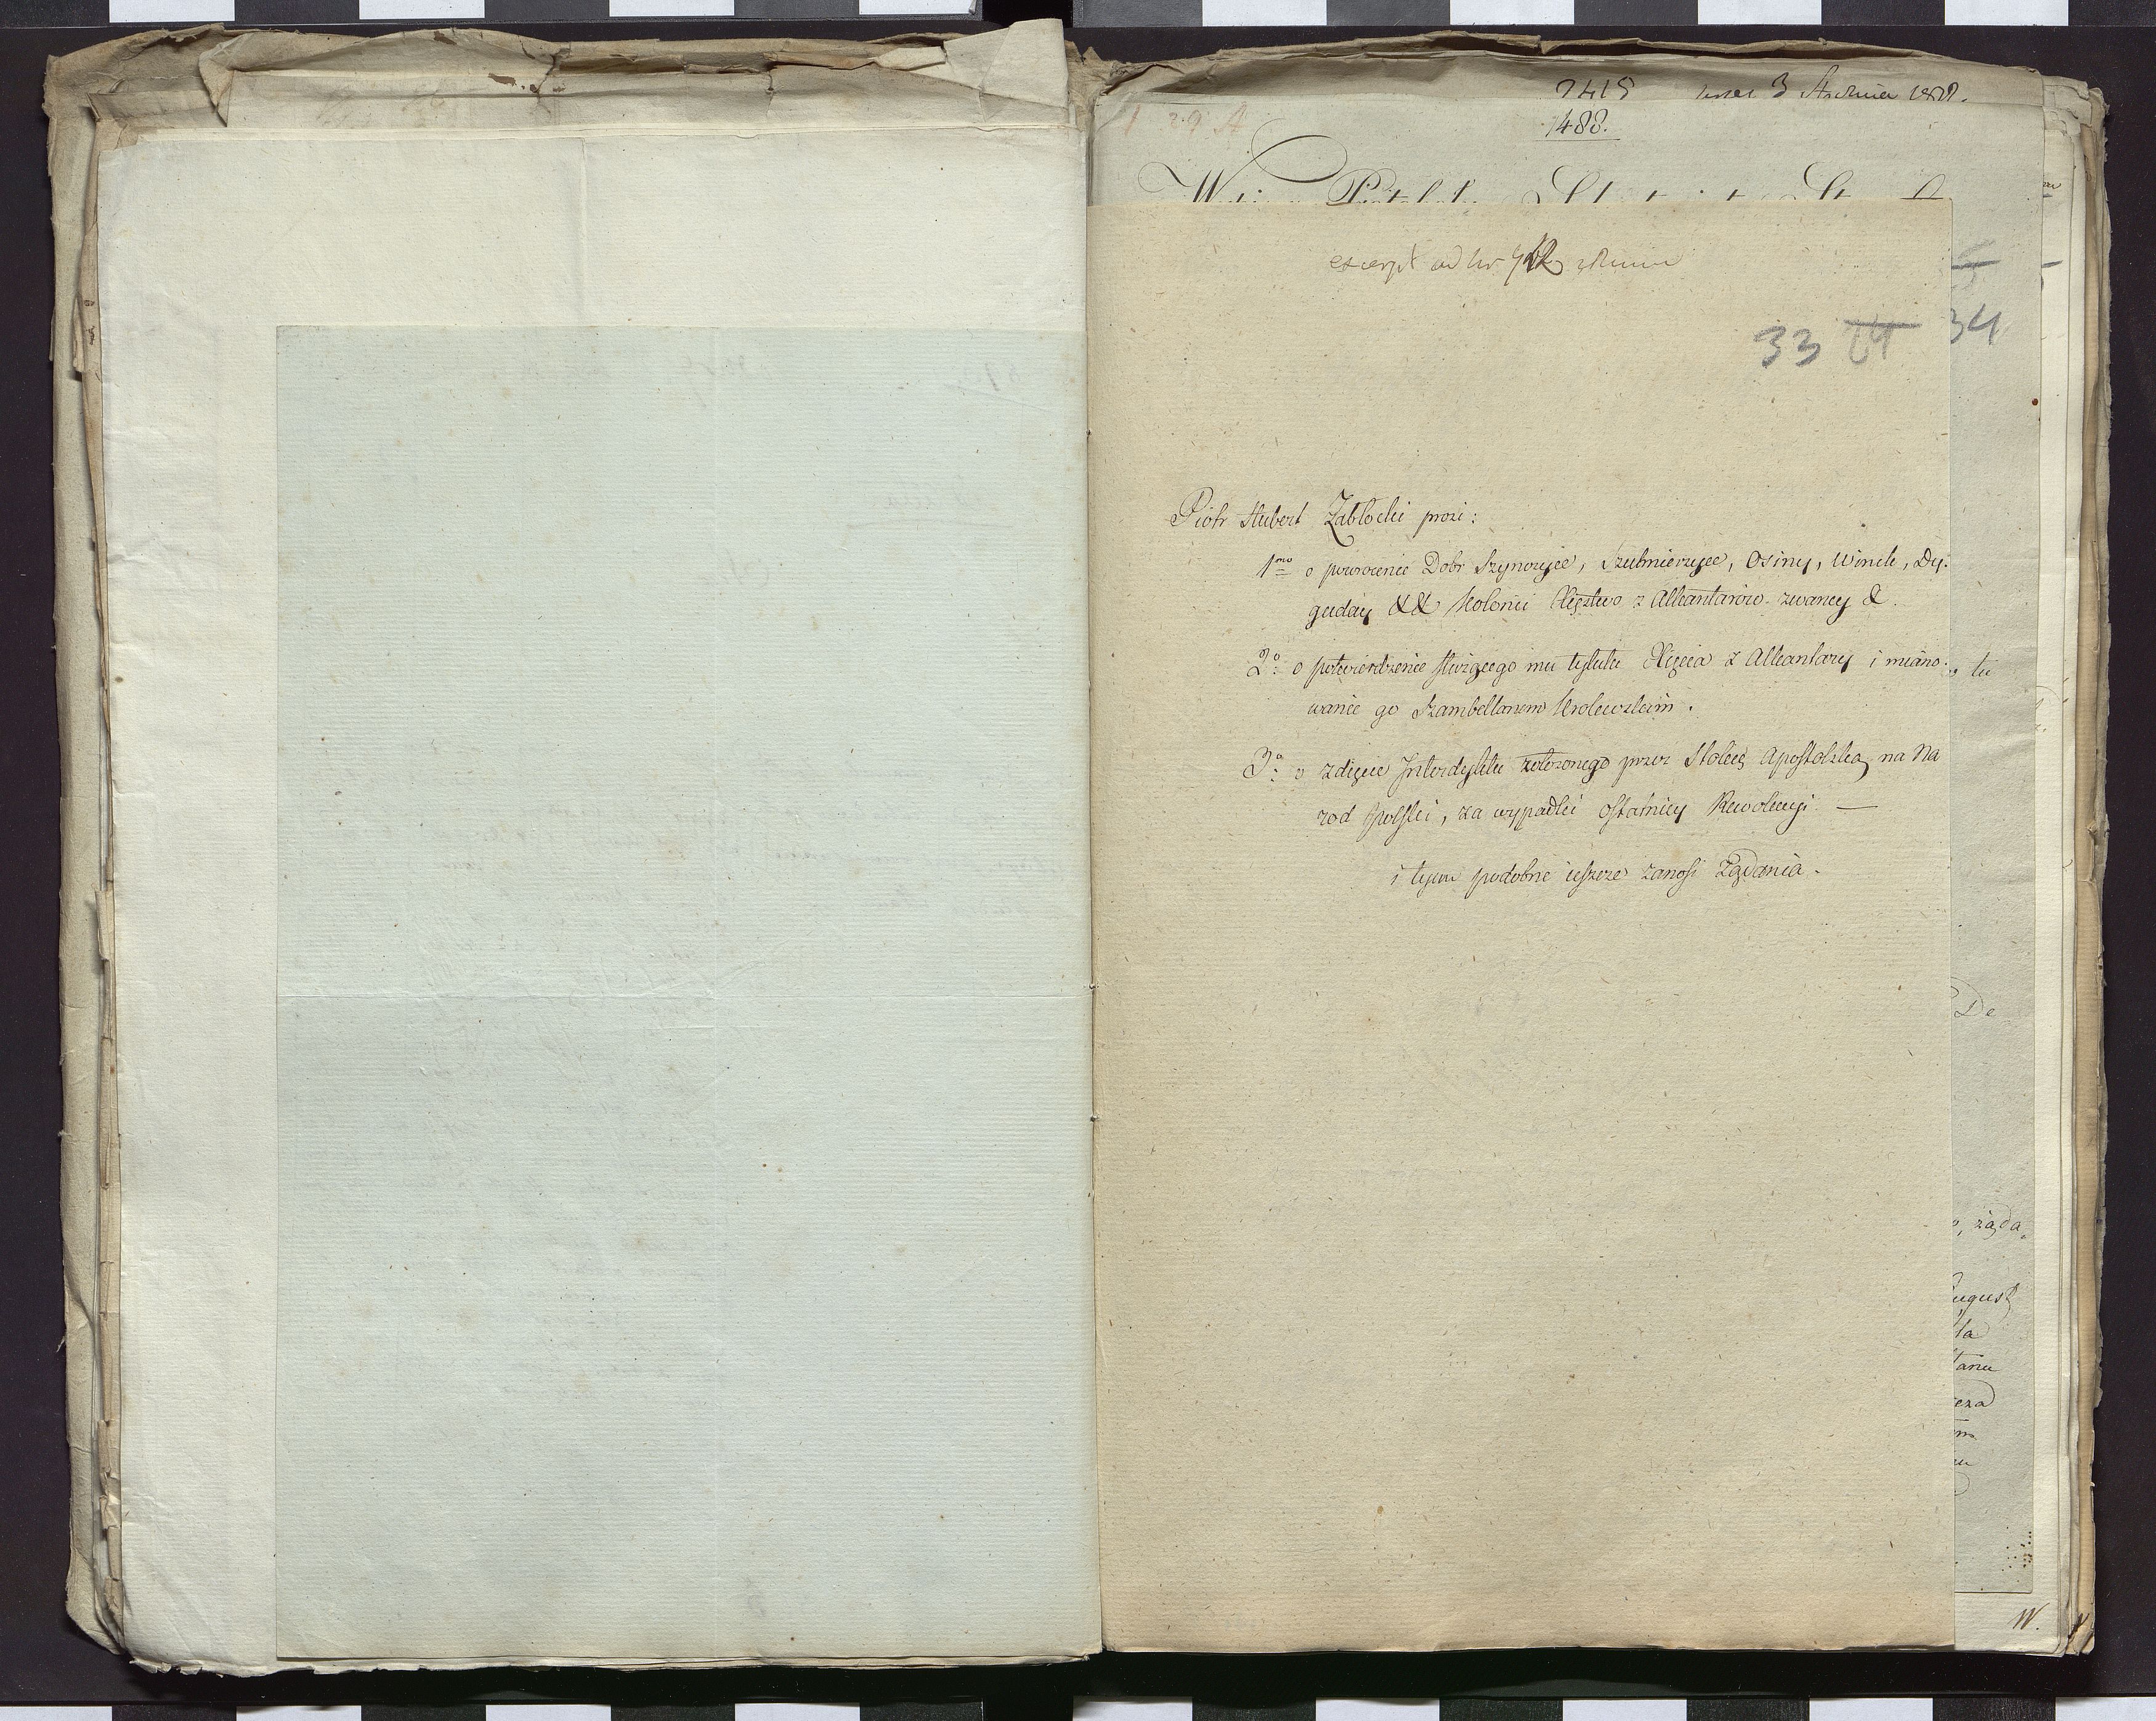 2415
3
1488.
29 A
33 24 34
Piotr Hubert Zabłocki prosi:
1mo o powrócenie Dobr Szynczyce, Szubnierzyce, Osiny, Winek, Dy-
guday && Kolonii Xięztwo z Alkantarow zwaney &.
2o o potwierdzenie służącego mu tytułu Xięcia z Alkantary i miano-
wanie go Szambellanem Krolewskim.
3o o zdięcie Interdyktu rzuconego przez Stolicę Apostolską na Na
rod Polski, za wypadki ostatniey Rewolucyi. —
i tym podobne ieszcze zanosi Żądania.
De
żąda
August
W.